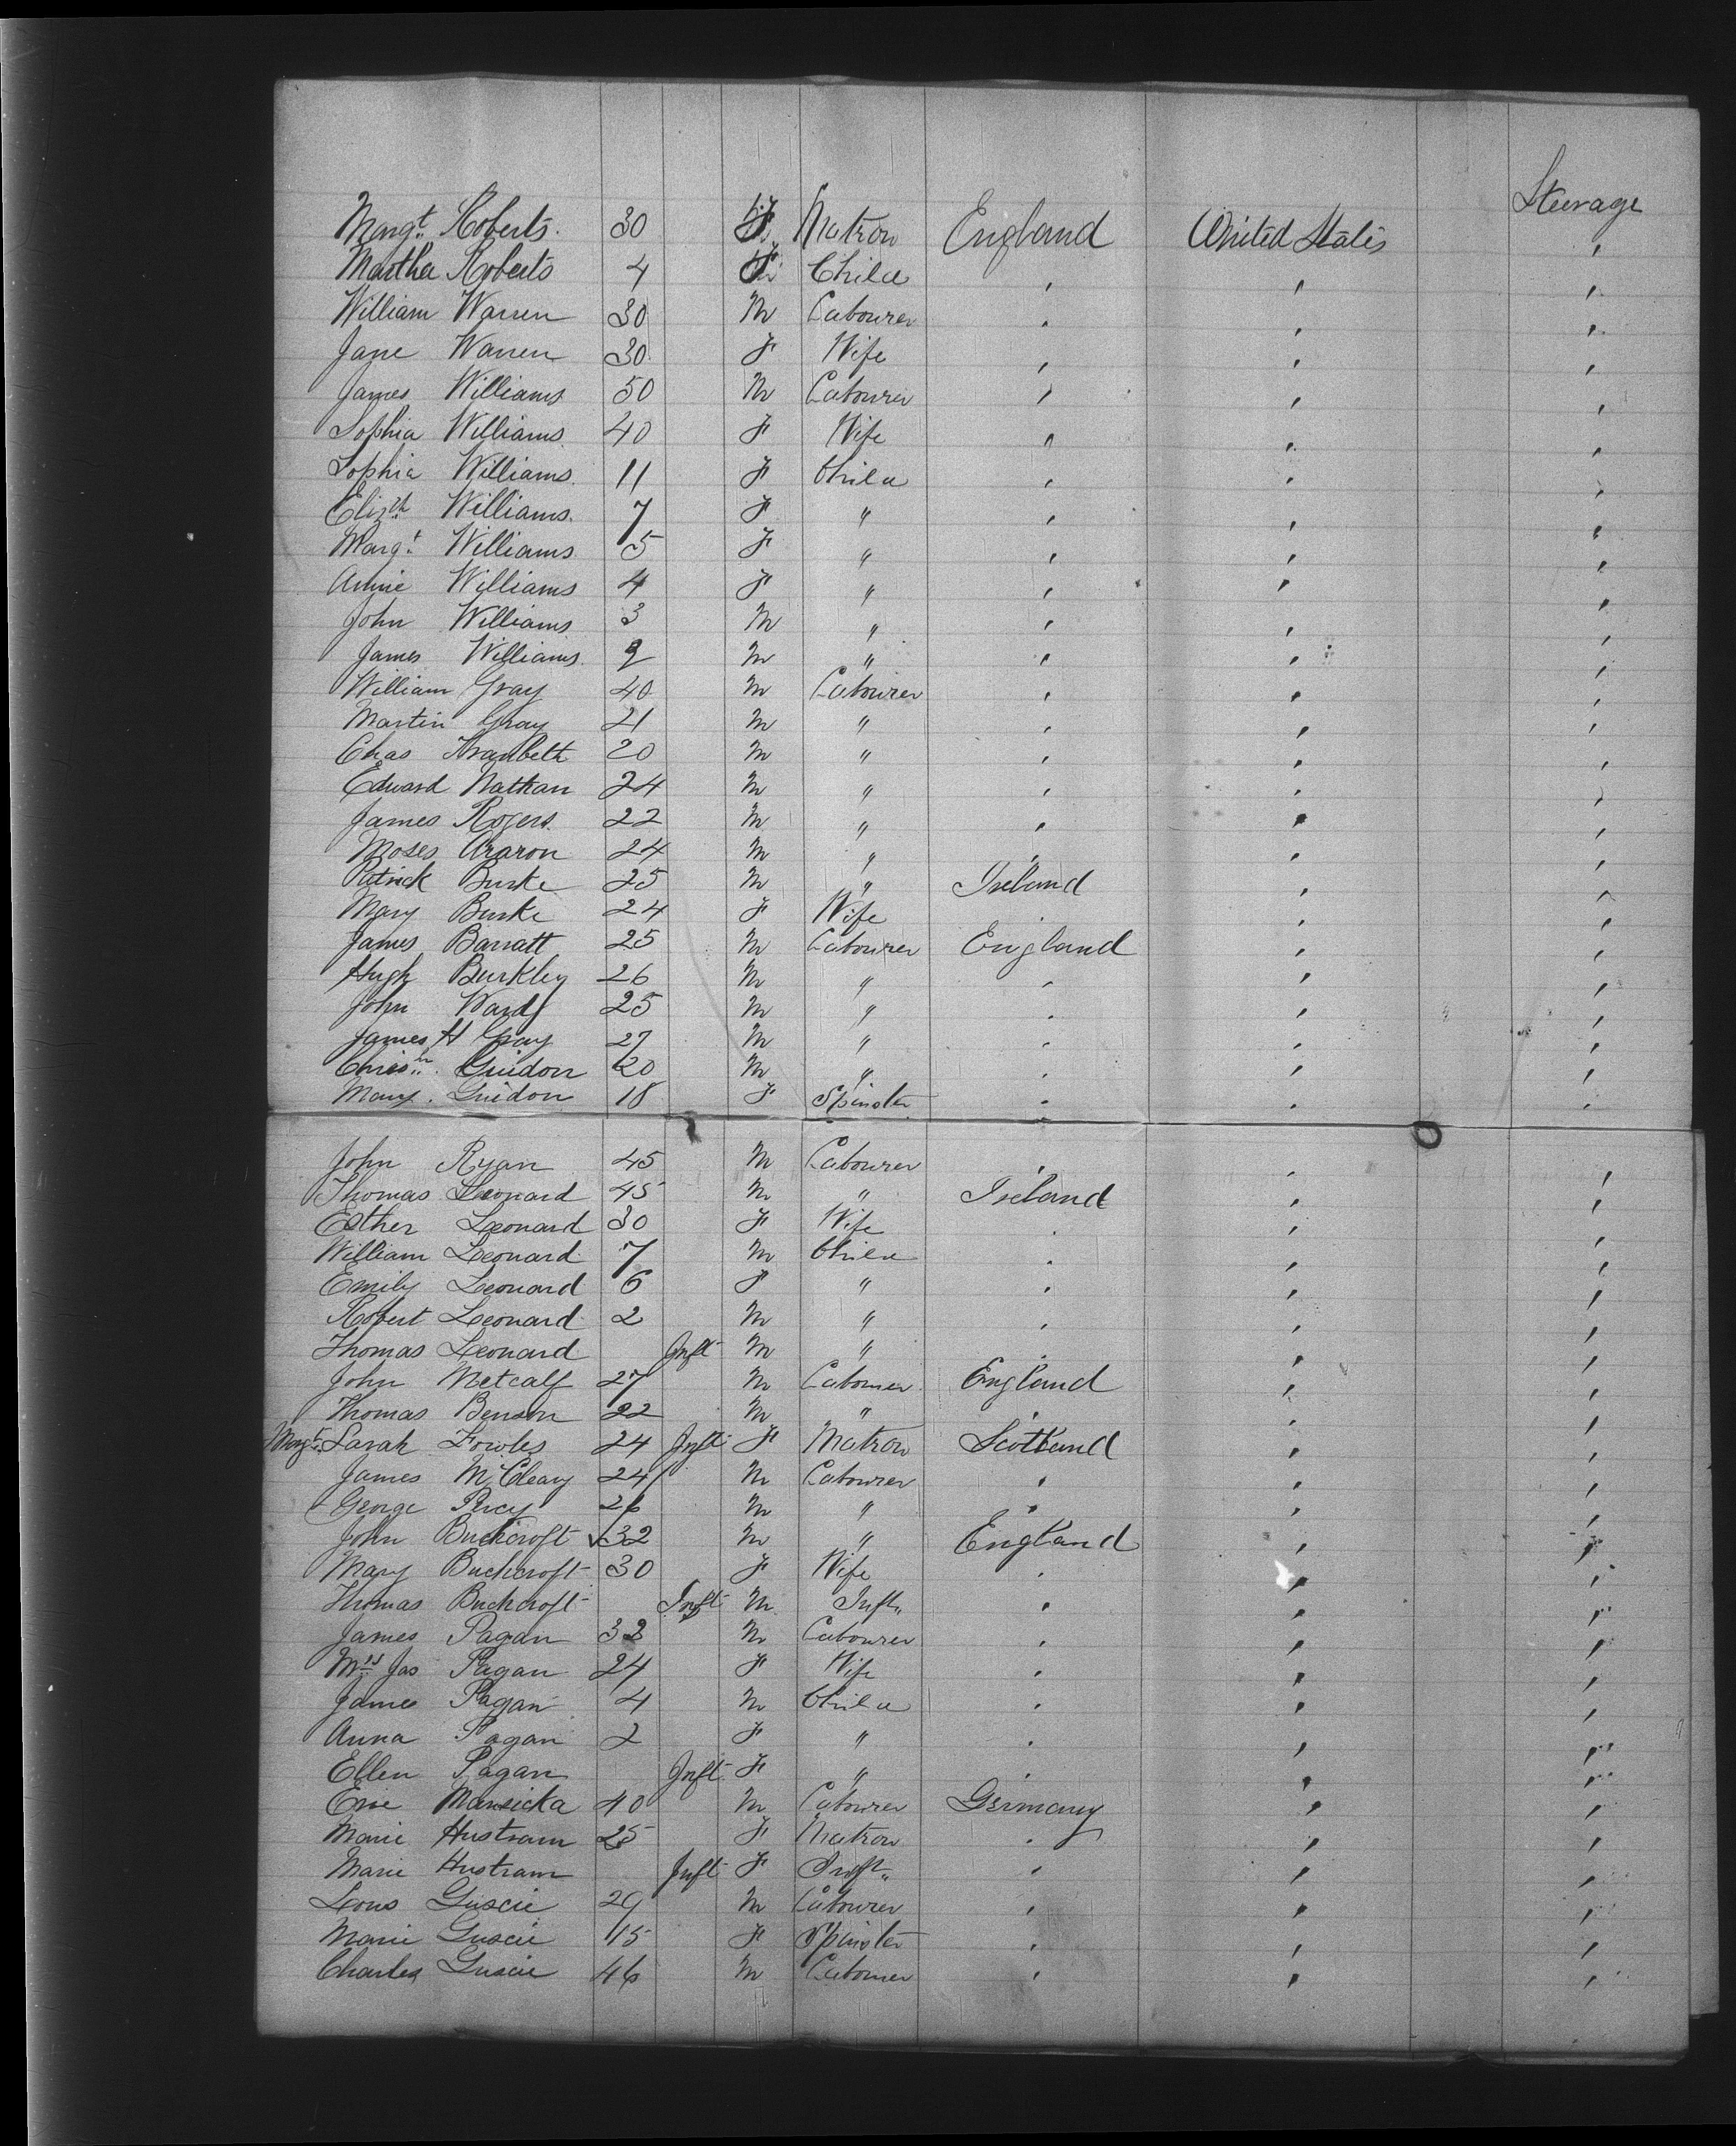 Steerage
Margt. Roberts. 30 F Matron England United States "
Martha Roberts 4 F Child " " "
William Warren 30 M Labourer " " "
Jane Warren 30 F Wife " " "
James Williams 50 M Labourer " " "
Sophia Williams 40 F Wife " " "
Sophia Williams 11 F Child " " "
Elizth Williams 7 F " " " "
Margt Williams 5 F " " " "
Annie Williams 4 F " " " "
John Williams 3 M " " " "
James Williams 2 M " " " "
William Gray 40 M Labourer " " "
Martin Gray 21 M " " " "
Chas 20 M " " " "
Edward Nathan 24 M " " " "
James Rogers 22 M " " " "
Moses Araron 24 M " " " "
Patrick Burke 25 M " Ireland " "
Mary Burke 24 F Wife " " "
James Barratt 25 M Labourer England " "
Hugh Burkley 26 M " " " "
John Ward 25 M " " " "
James H Gray 27 M " " " "
Guidon 20 M " " " "
Mary Guidon 18 F Spinster " " "
John Ryan 45 M Labourer " " "
Thomas Leonard 45 M " Ireland " "
Esther Leonard 30 F Wife " " "
William Leonard 7 M Child " " "
Emily Leonard 6 F " " " "
Robert Leonard 2 M " " " "
Thomas Leonard Inft M " " " "
John Metcalf 27 M Labourer England " "
Thomas Benson 22 M " " " "
Margt Sarah Fowles 24 Inft F Matron Scotland " "
James McCleary 24 M Labourer " " "
George Percy 26 M " " " "
John Buchcroft 32 M " England " "
Mary Buchcroft 30 F Wife " " "
Thomas Buchcroft Inft M Inft " " "
James Pagan 32 M Labourer " " "
Mrs Jas Pagan 24 F Wife " " "
James Pagan 4 M Child " " "
Anna Pagan 2 F " " " "
Ellen Pagan Inft F " " " "
Mansicka 40 M Labourer Germany " "
Marie Hustram 25 F Matron " " "
Marie Hustram Inft F Inft " " "
Lous Guscie 29 M Labourer " " "
Marie Guscie 15 F Spinster " " "
Charles Guscie 46 M Labourer " " "